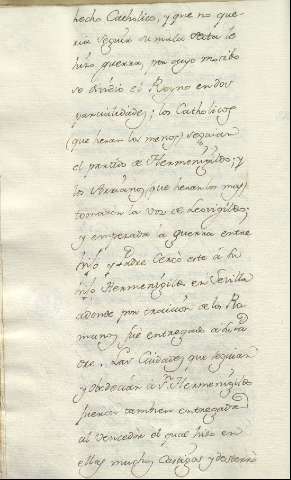 hecho Catholico, y que no que-
ria seguir su mala Seta le
hizo guerra, por cuyo motibo
se dividio el Reyno en dos
parcialidades; los Catholicos
(que heran los menos) seguian
el partido de Hermenigildo; y
los Arrianos (que heran los mas)
tomaron la voz de Leovigildo;
y empezada la guerra entre
hijo y Padre Cercó este á su
hijo Hermenigildo en Sevilla
adonde por traicion de los Ro-
manos fué entregado á su Pa-
dre. Las Ciudades que seguian
y obedecian á Sn. Hermenigildo
fueron tambien entregadas
al vencedor el qual hizo en
ellas muchos Castigos y desterró